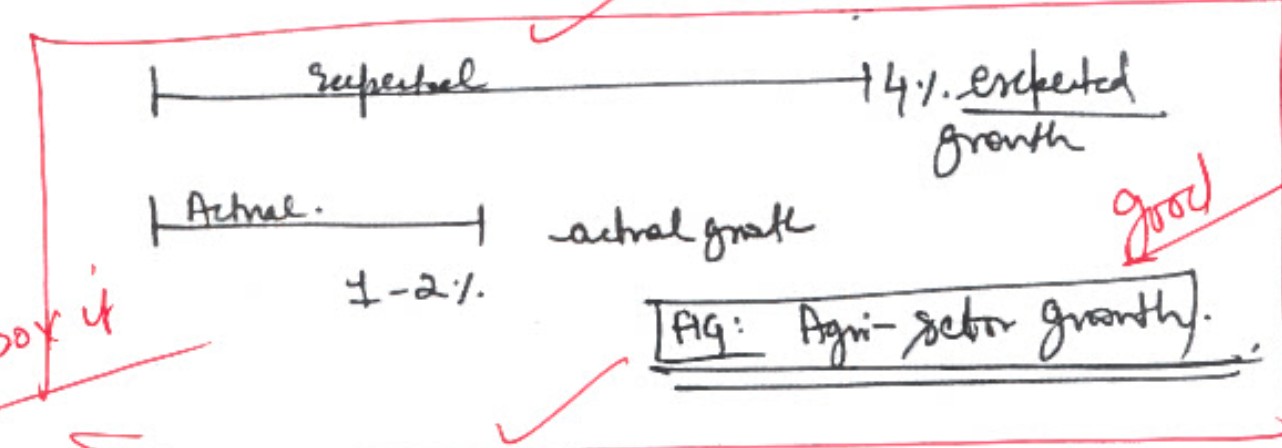 expected 4%. expected
growth
Actual. actual growth
good
1-2%.
box it
FIG: Agri-sector growth.